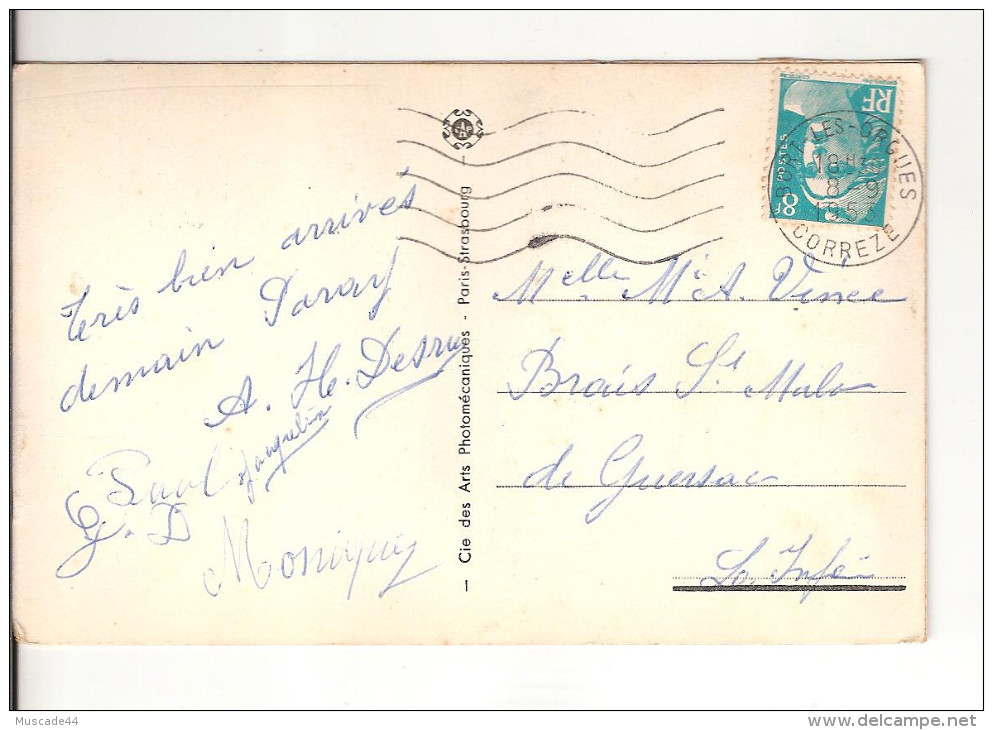 très bien arrivés
demain Paray
A. H. Desru
Paul Jacqueline
J. D
Monique
— Cie des Arts Photomécaniques - Paris-Strasbourg —
RF
POSTES
8F
BORT-LES-ORGUES
18H
8 9
1953
CORREZE
Melle M A. Vince
Brais St Malo
de Guersac
Lo. Infé
Muscade44
delcampe.net